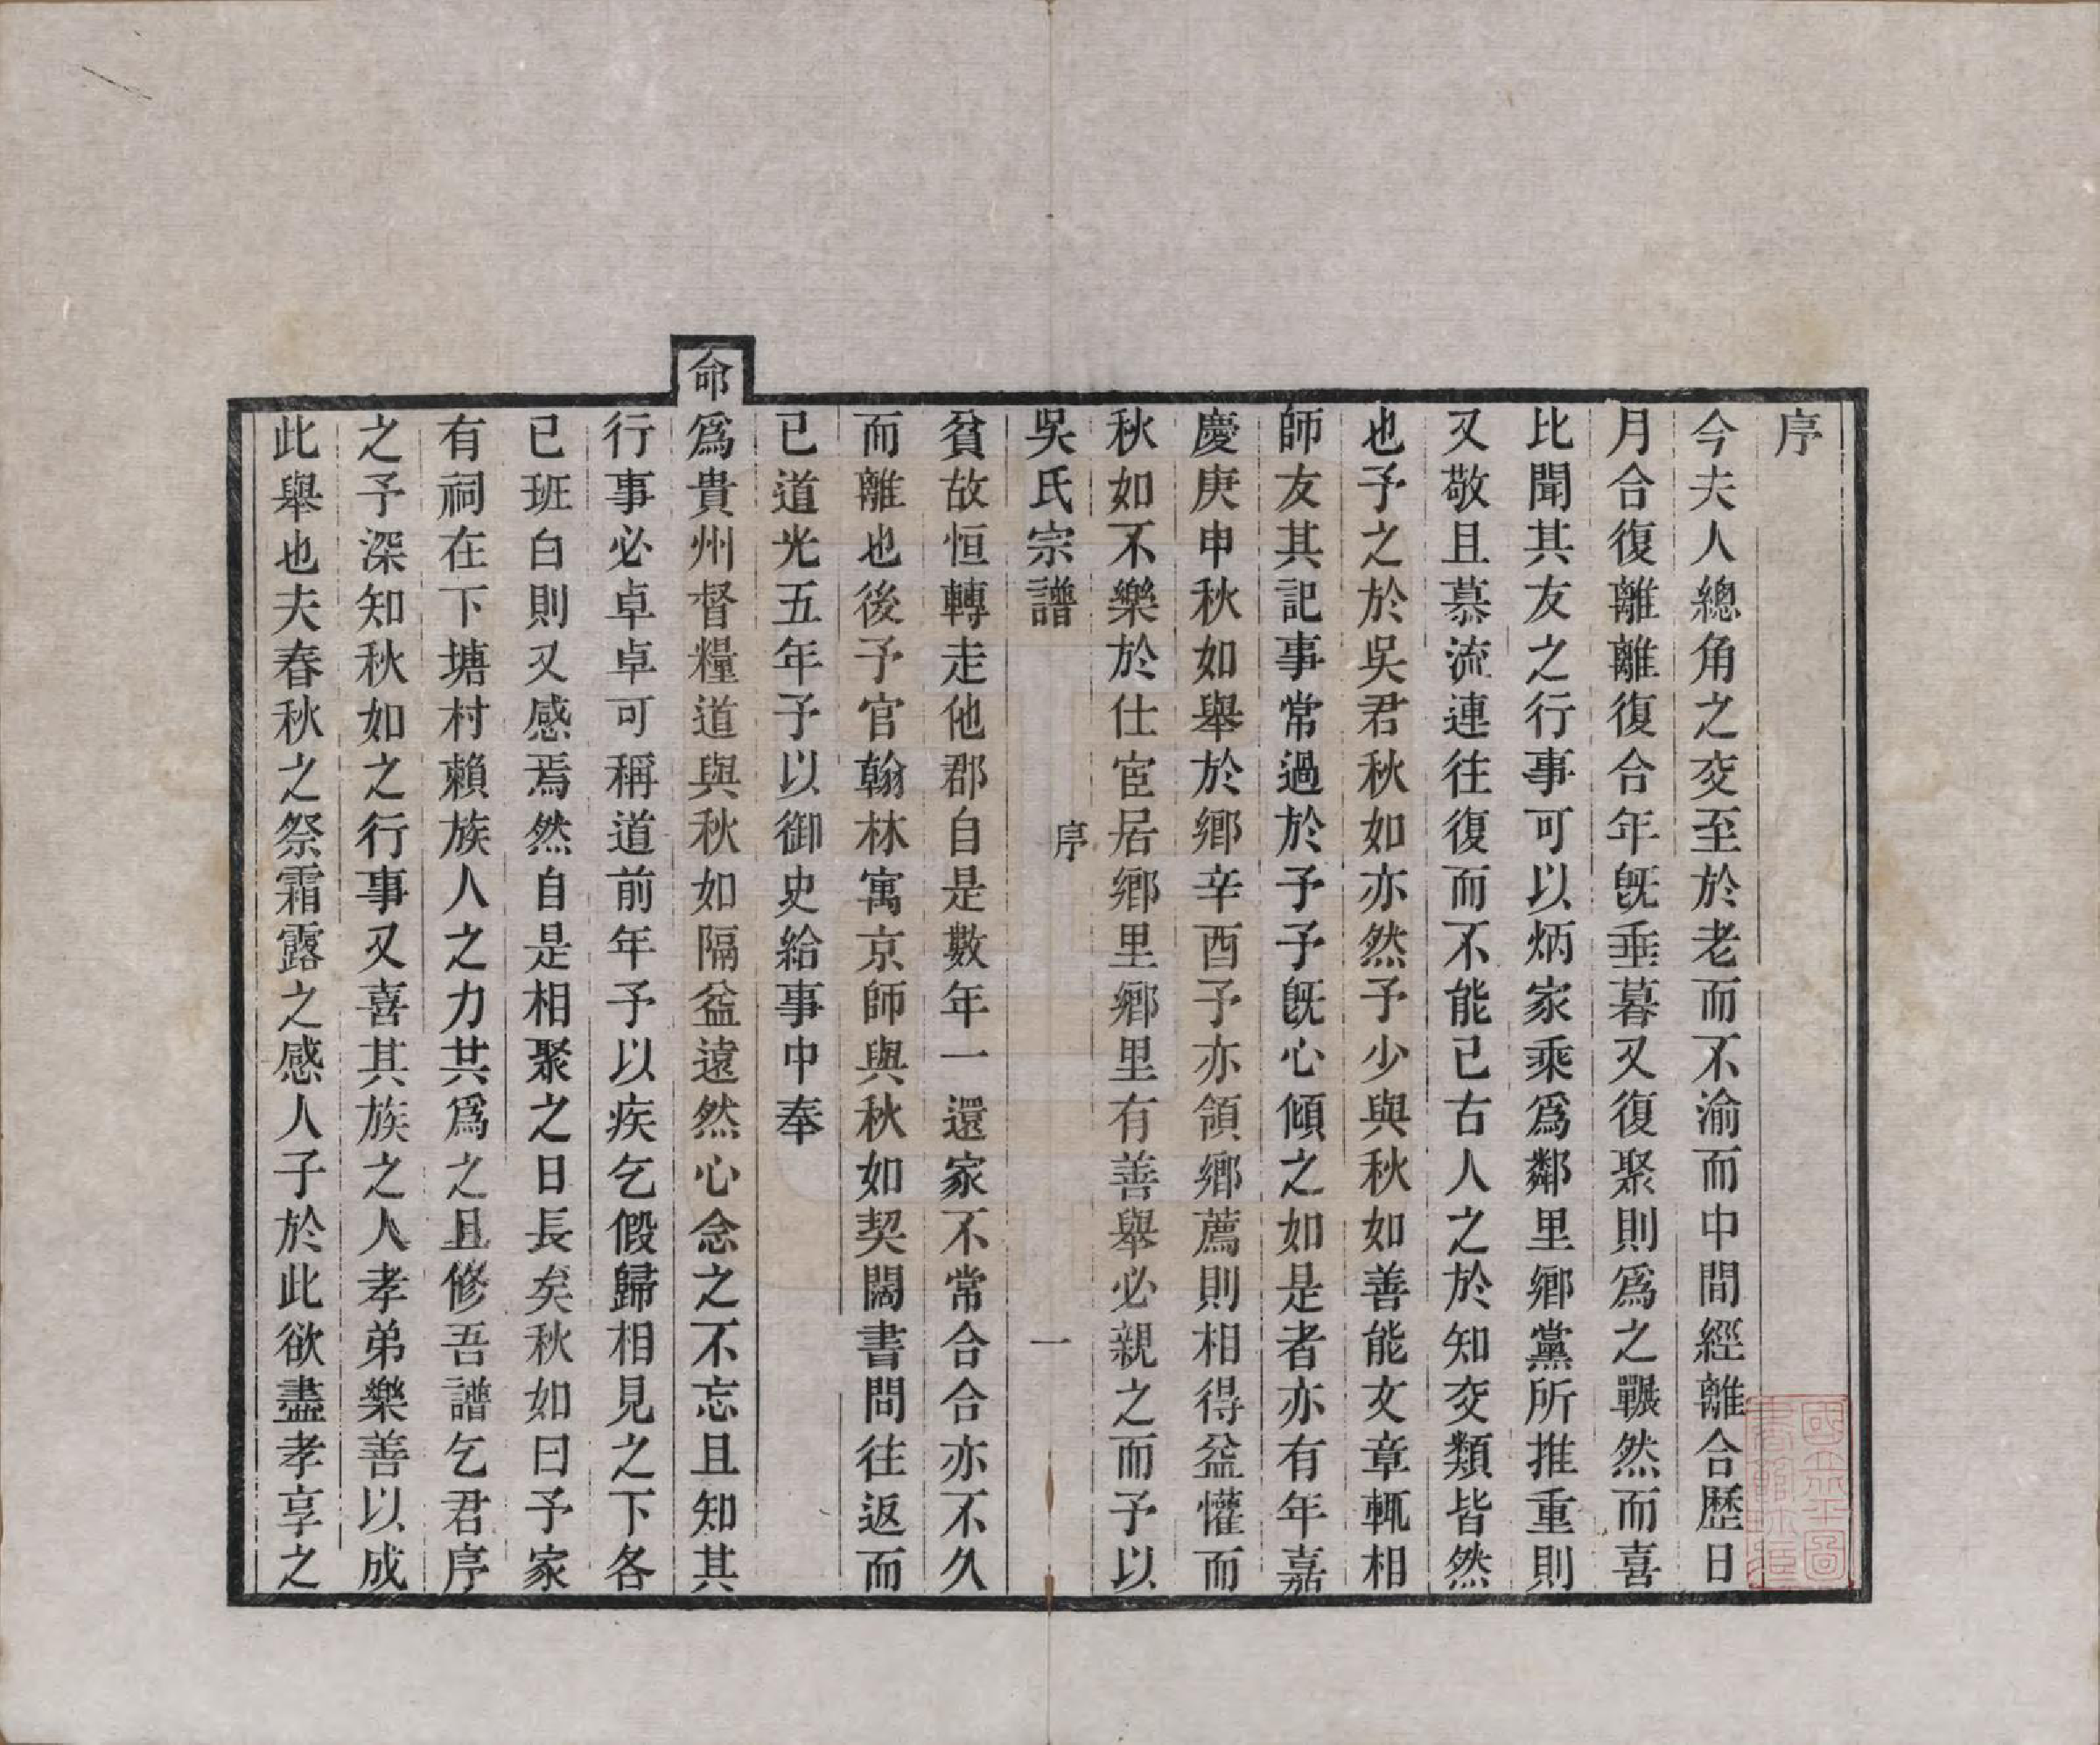 序
今夫人總角之交至於老而不渝而中間經離合歷日
月合復離離復合年旣垂暮又復聚則爲之囅然而喜
比聞其友之行事可以炳家乘爲鄰里鄉黨所推重則
又敬且慕流連往復而不能已古人之於知交類皆然
也予之於吳君秋如亦然予少與秋如善能文章輒相
師友其記事常過於予予旣心傾之如是者亦有年嘉
慶庚申秋如舉於鄉辛酉予亦領鄉薦則相得益懽而
秋如不樂於仕宦居鄉里鄉里有善舉必親之而予以
吳氏宗譜 序 一
貧故恒轉走他郡自是數年一還家不常合合亦不久
而離也後予官翰林寓京師與秋如契闊書問往返而
已道光五年予以御史給事中奉
命爲貴州督糧道與秋如隔益遠然心念之不忘且知其
行事必卓卓可稱道前年予以疾乞假歸相見之下各
已班白則又感焉然自是相聚之日長矣秋如曰予家
有祠在下塘村賴族人之力共爲之且修吾譜乞君序
之予深知秋如之行事又喜其族之人孝弟樂善以成
此舉也夫春秋之祭霜露之感人子於此欲盡孝享之
國立北平圖
書館珍藏